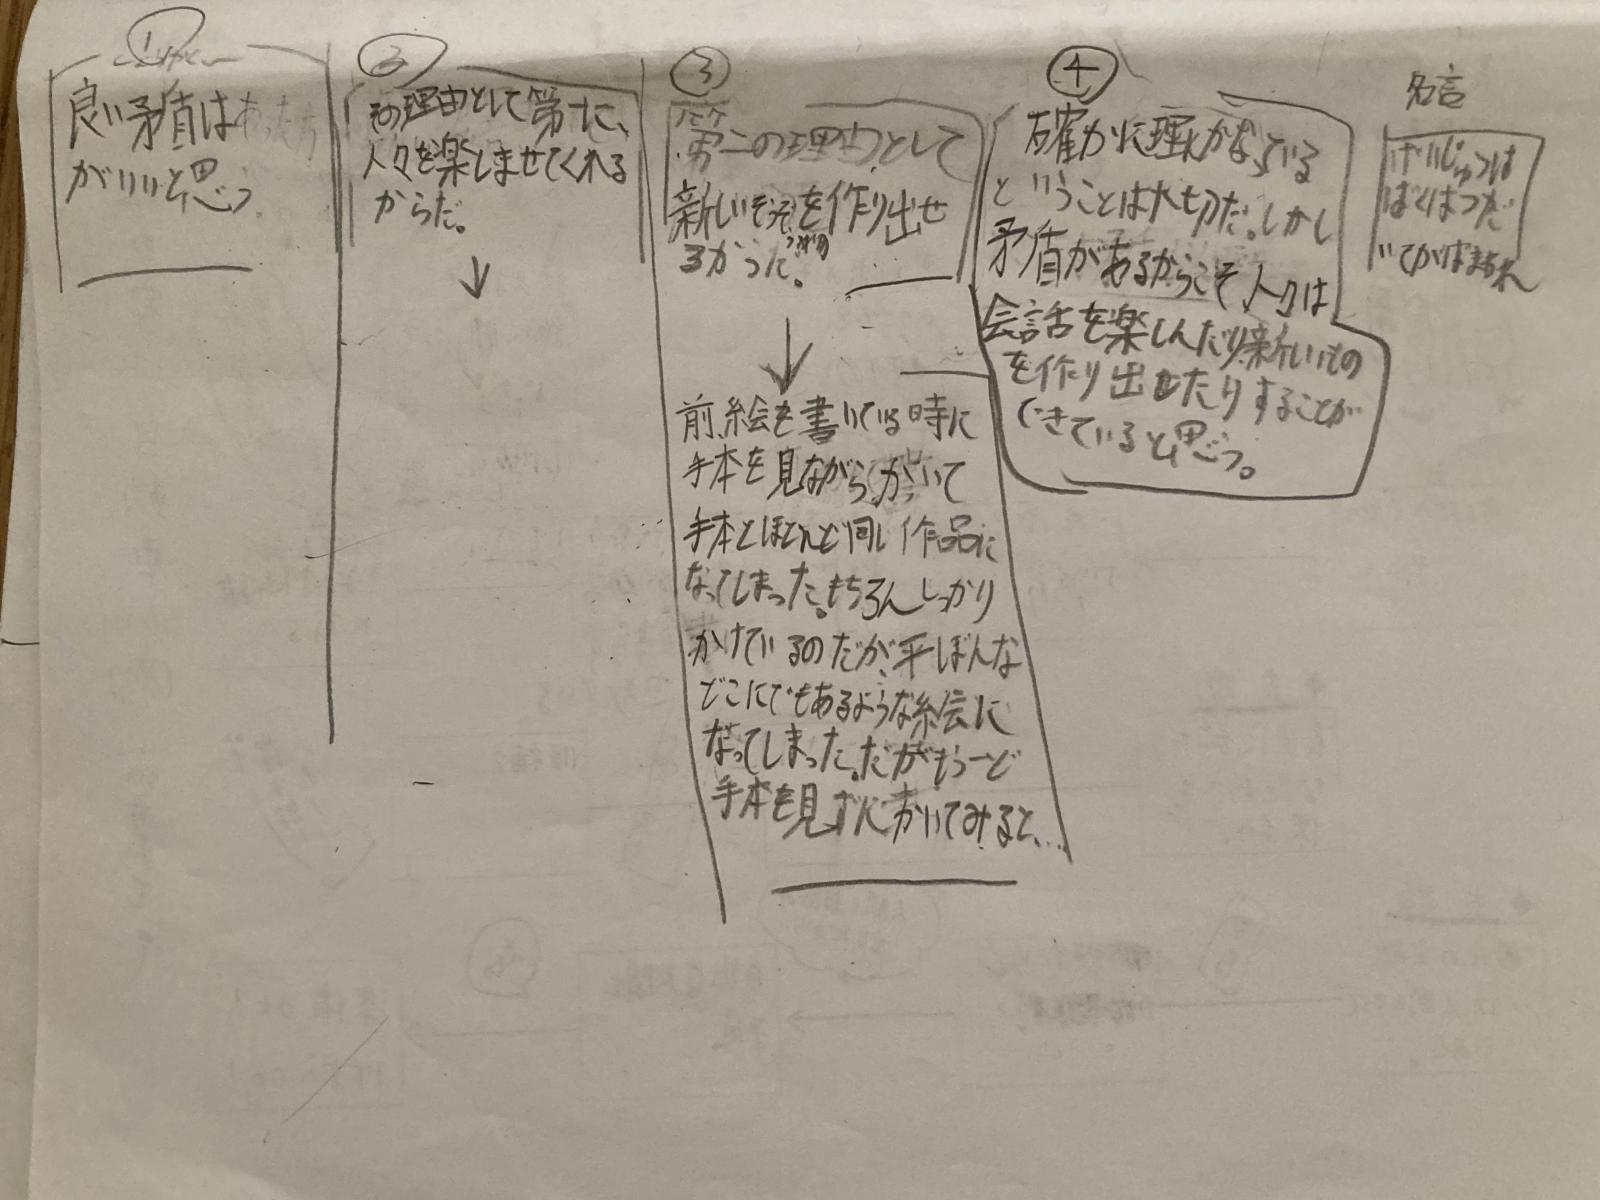 ①
良い矛盾はあったち
がいいと思う
②
その理由として第一に、
人々を楽しませてくれる
からだ。
↓
③
第二の理由として
新しいぞうぞを作り出せ
るからだ。
↓
前、絵を書いている時に
手本を見ながらかいて
手本とほとんど同じ作品に
なってしまった。もちろんしっかり
かけているのだが、平ぼんな
どこにでもあるような絵に
なってしまった。だがもう一ど
手本を見ずにかいてみると、…
④
確かに理にかなっている
ということは大切だ。しかし
矛盾があるからこそ、人々は
会話を楽しんだり新しいもの
を作り出したりすることが
できていると思う。
名言
げいじゅつは
ばくはつだ